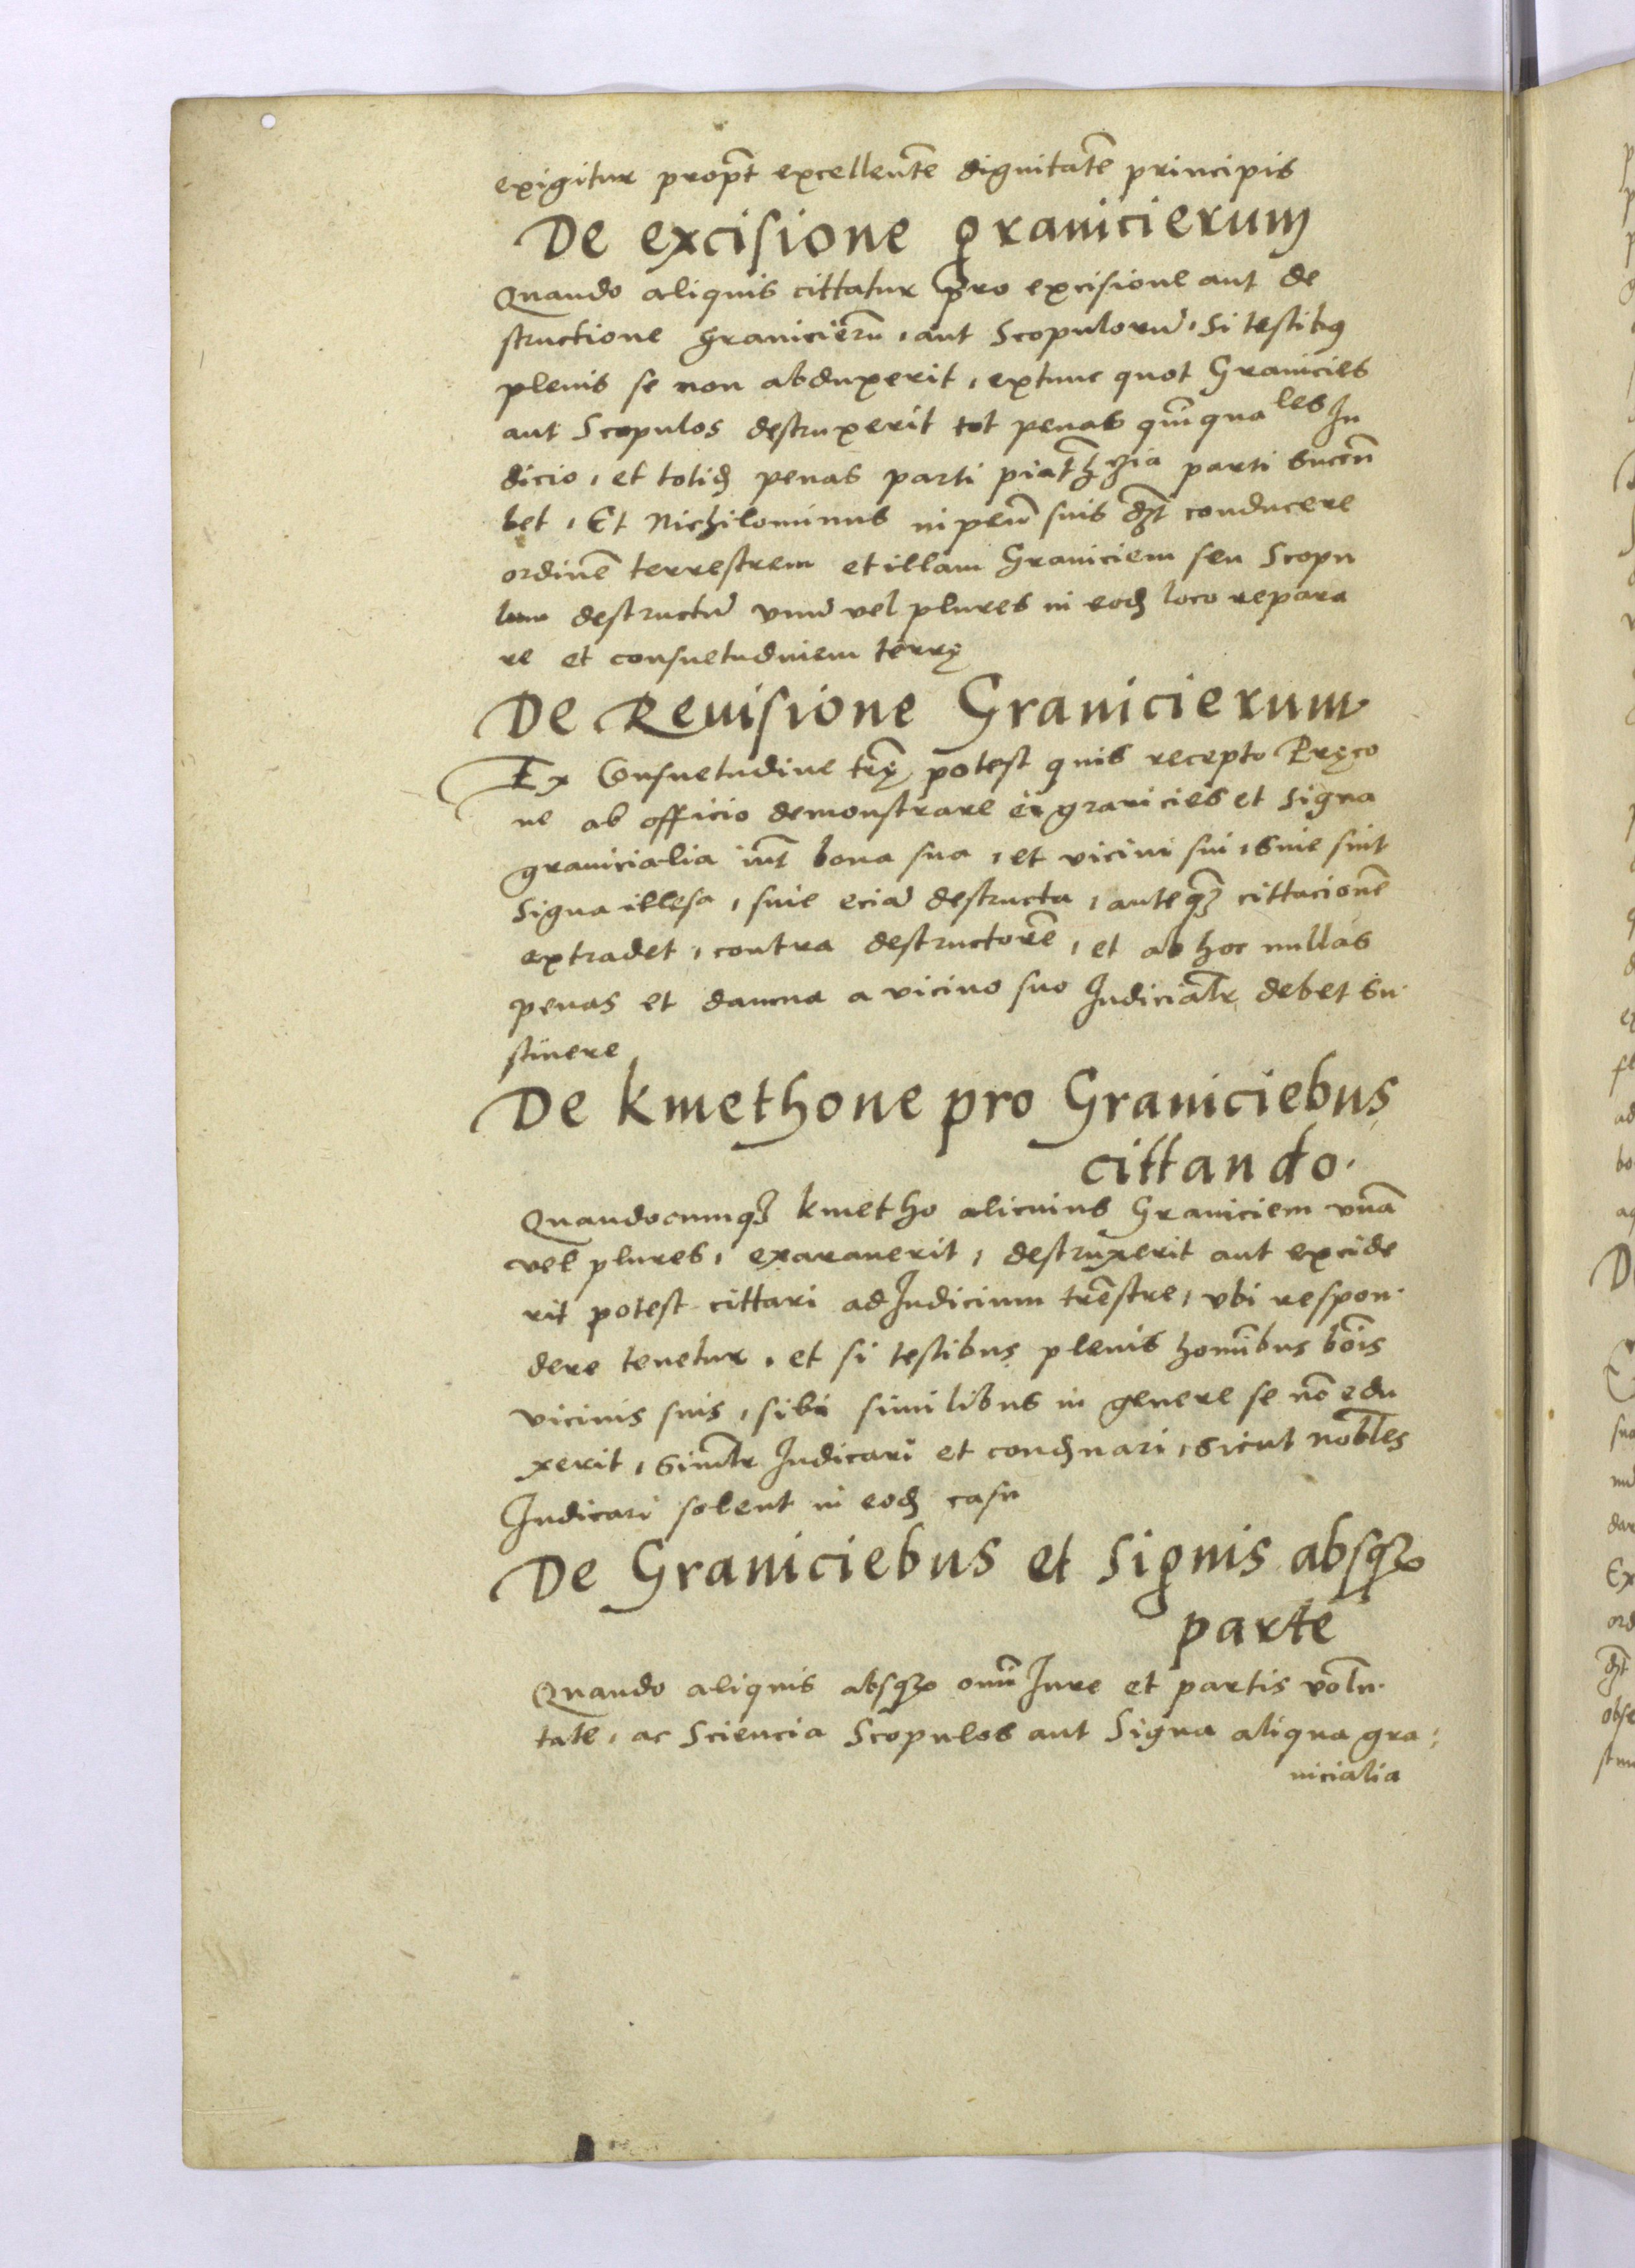 exigitur propt̃ excellentẽ dignitatẽ principis
De excisione granicierum
Quando aliquis cittatur pro excisione aut de
structione Granicierũ, aut Scopulorũ, Si testibꝰ
plenis se non abduxerit, extunc quot Granicies
aut Scopulos destruxerit tot penas quĩquales Iu
dicio, et totiđ penas parti parti succũ
bet, Et Nichilominus suis conducere
ordinẽ terrestrem et illam Graniciem seu Scopu
lum destructũ vnũ vel plures in eođ loco repara
re et consuetudinem terrę
De Reuisione Granicierum
Ex Consuetudine trę̃ potest quis recepto Pręco
ne ab officio demonstrare ei granicies et Signa
granicialia int̃ bona sua, et vicini sui, siue sint
Signa illesa, siue eciã destructa, anteqꝫ cittacionẽ
extradet, contra destructorẽ, et ab hoc nullas
penas et damna a vicino suo Iudicialr̃ debet su
stinere
De kmethone pro Graniciebus
cittando.
Quandocumqꝫ kmetho alicuius Graniciem vnã
vel plures, exarauerit, destruxerit aut excide
rit potest cittari ad Iudicium trẽstre, vbi respon
dere tenetur, et si testibus plenis homĩbus bõis
vicinis suis, sibi similibus in genere se nõ edu
xerit, Simlr̃ Iudicari et conđnari, sicut nobl̃es
Iudicari solent in eođ casu
De Graniciebus et Signis absqꝫ
parte
Quando aliquis absqꝫ omĩ Iure et partis volũ
tate, ac Sciencia Scopulos aut Signa aliqua gra:
nicialia